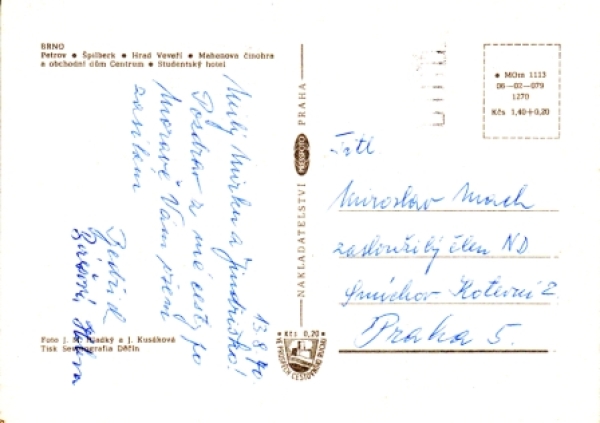 BRNO
Petrov ● Špilberk ● Hrad Veveří ● Mahenova činohra
a obchodní dům Centrum ● Studentský hotel
13.8.70.
Milý Mirku a Jindřiško!
Pozdrav z mé cesty po
Moravě Vám všem
zasílám
Bedřich
Foto J. M. Hladký a J. Kusáková
Tisk Severografia Děčín
NAKLADATELSTVÍ PRESSFOTO PRAHA
● MOtn 1113
06—02—079
1270
Kčs 1,40+0,20
● Kčs 0,20 ●
VE PROSPĚCH CESTOVNÍHO RUCHU
Miroslav Mach
zasloužilý člen ND
Smíchov Kotevní 2
Praha 5.